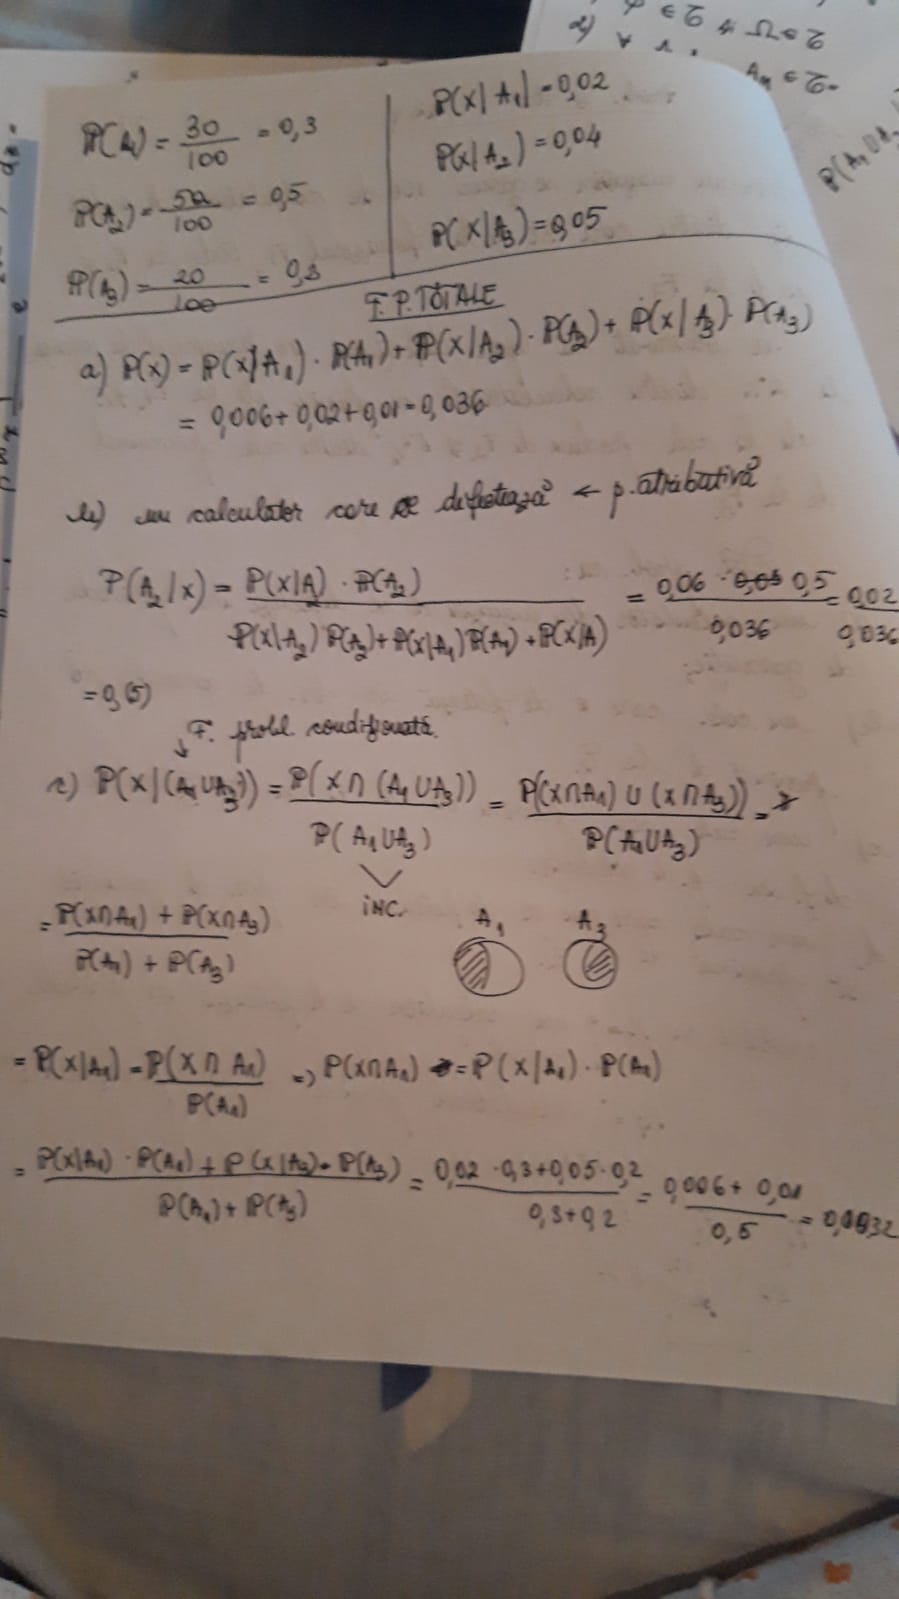 P(A₁) = 30/100 = 0,3
P(A₂) = 50/100 = 0,5
P(A₃) = 20/100 = 0,2
P(X|A₁| = 0,02
P(X|A₂) = 0,04
P(X|A₃) = 0,05
F.P. TOTALE
a) P(X) = P(X|A₁) · P(A₁) + P(X|A₂) · P(A₂) + P(X|A₃) · P(A₃)
= 0,006 + 0,02 + 0,01 = 0,036
b) un calculator care se defectează ← p. atributivă
P(A₂|X) = P(X|A₂) · P(A₂) / P(X|A₂) P(A₂) + P(X|A₁) P(A₁) + P(X|A) = 0,06 · 0,5 / 0,036 = 0,02 / 0,036
= 0,(5)
F. probl. condiționată
c) P(X|(A₁∪A₃)) = P(X∩(A₁∪A₃)) / P(A₁∪A₃) = P((X∩A₁)∪(X∩A₃)) / P(A₁∪A₃) =
inc.
= P(X∩A₁) + P(X∩A₃) / P(A₁) + P(A₃)
A₁ A₃
= P(X|A₁) = P(X∩A₁) / P(A₁) => P(X∩A₁) = P(X|A₁) · P(A₁)
= P(X|A₁) · P(A₁) + P(X|A₃) · P(A₃) / P(A₁) + P(A₃) = 0,02 · 0,3 + 0,05 · 0,2 / 0,3 + 0,2 = 0,006 + 0,01 / 0,5 = 0,032